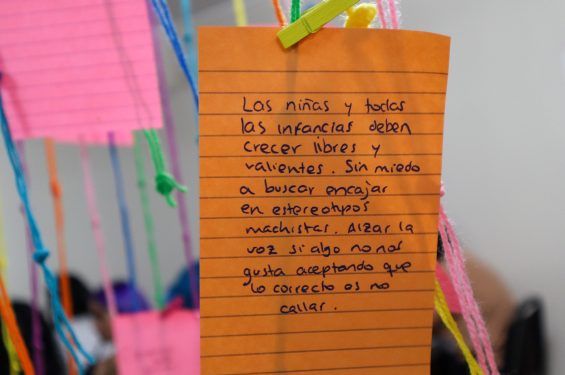 Las niñas y todas
las infancias deben
crecer libres y
valientes. Sin miedo
a buscar encajar
en estereotipos
machistas. Alzar la
voz si algo no nos
gusta aceptando que
lo correcto es no
callar.